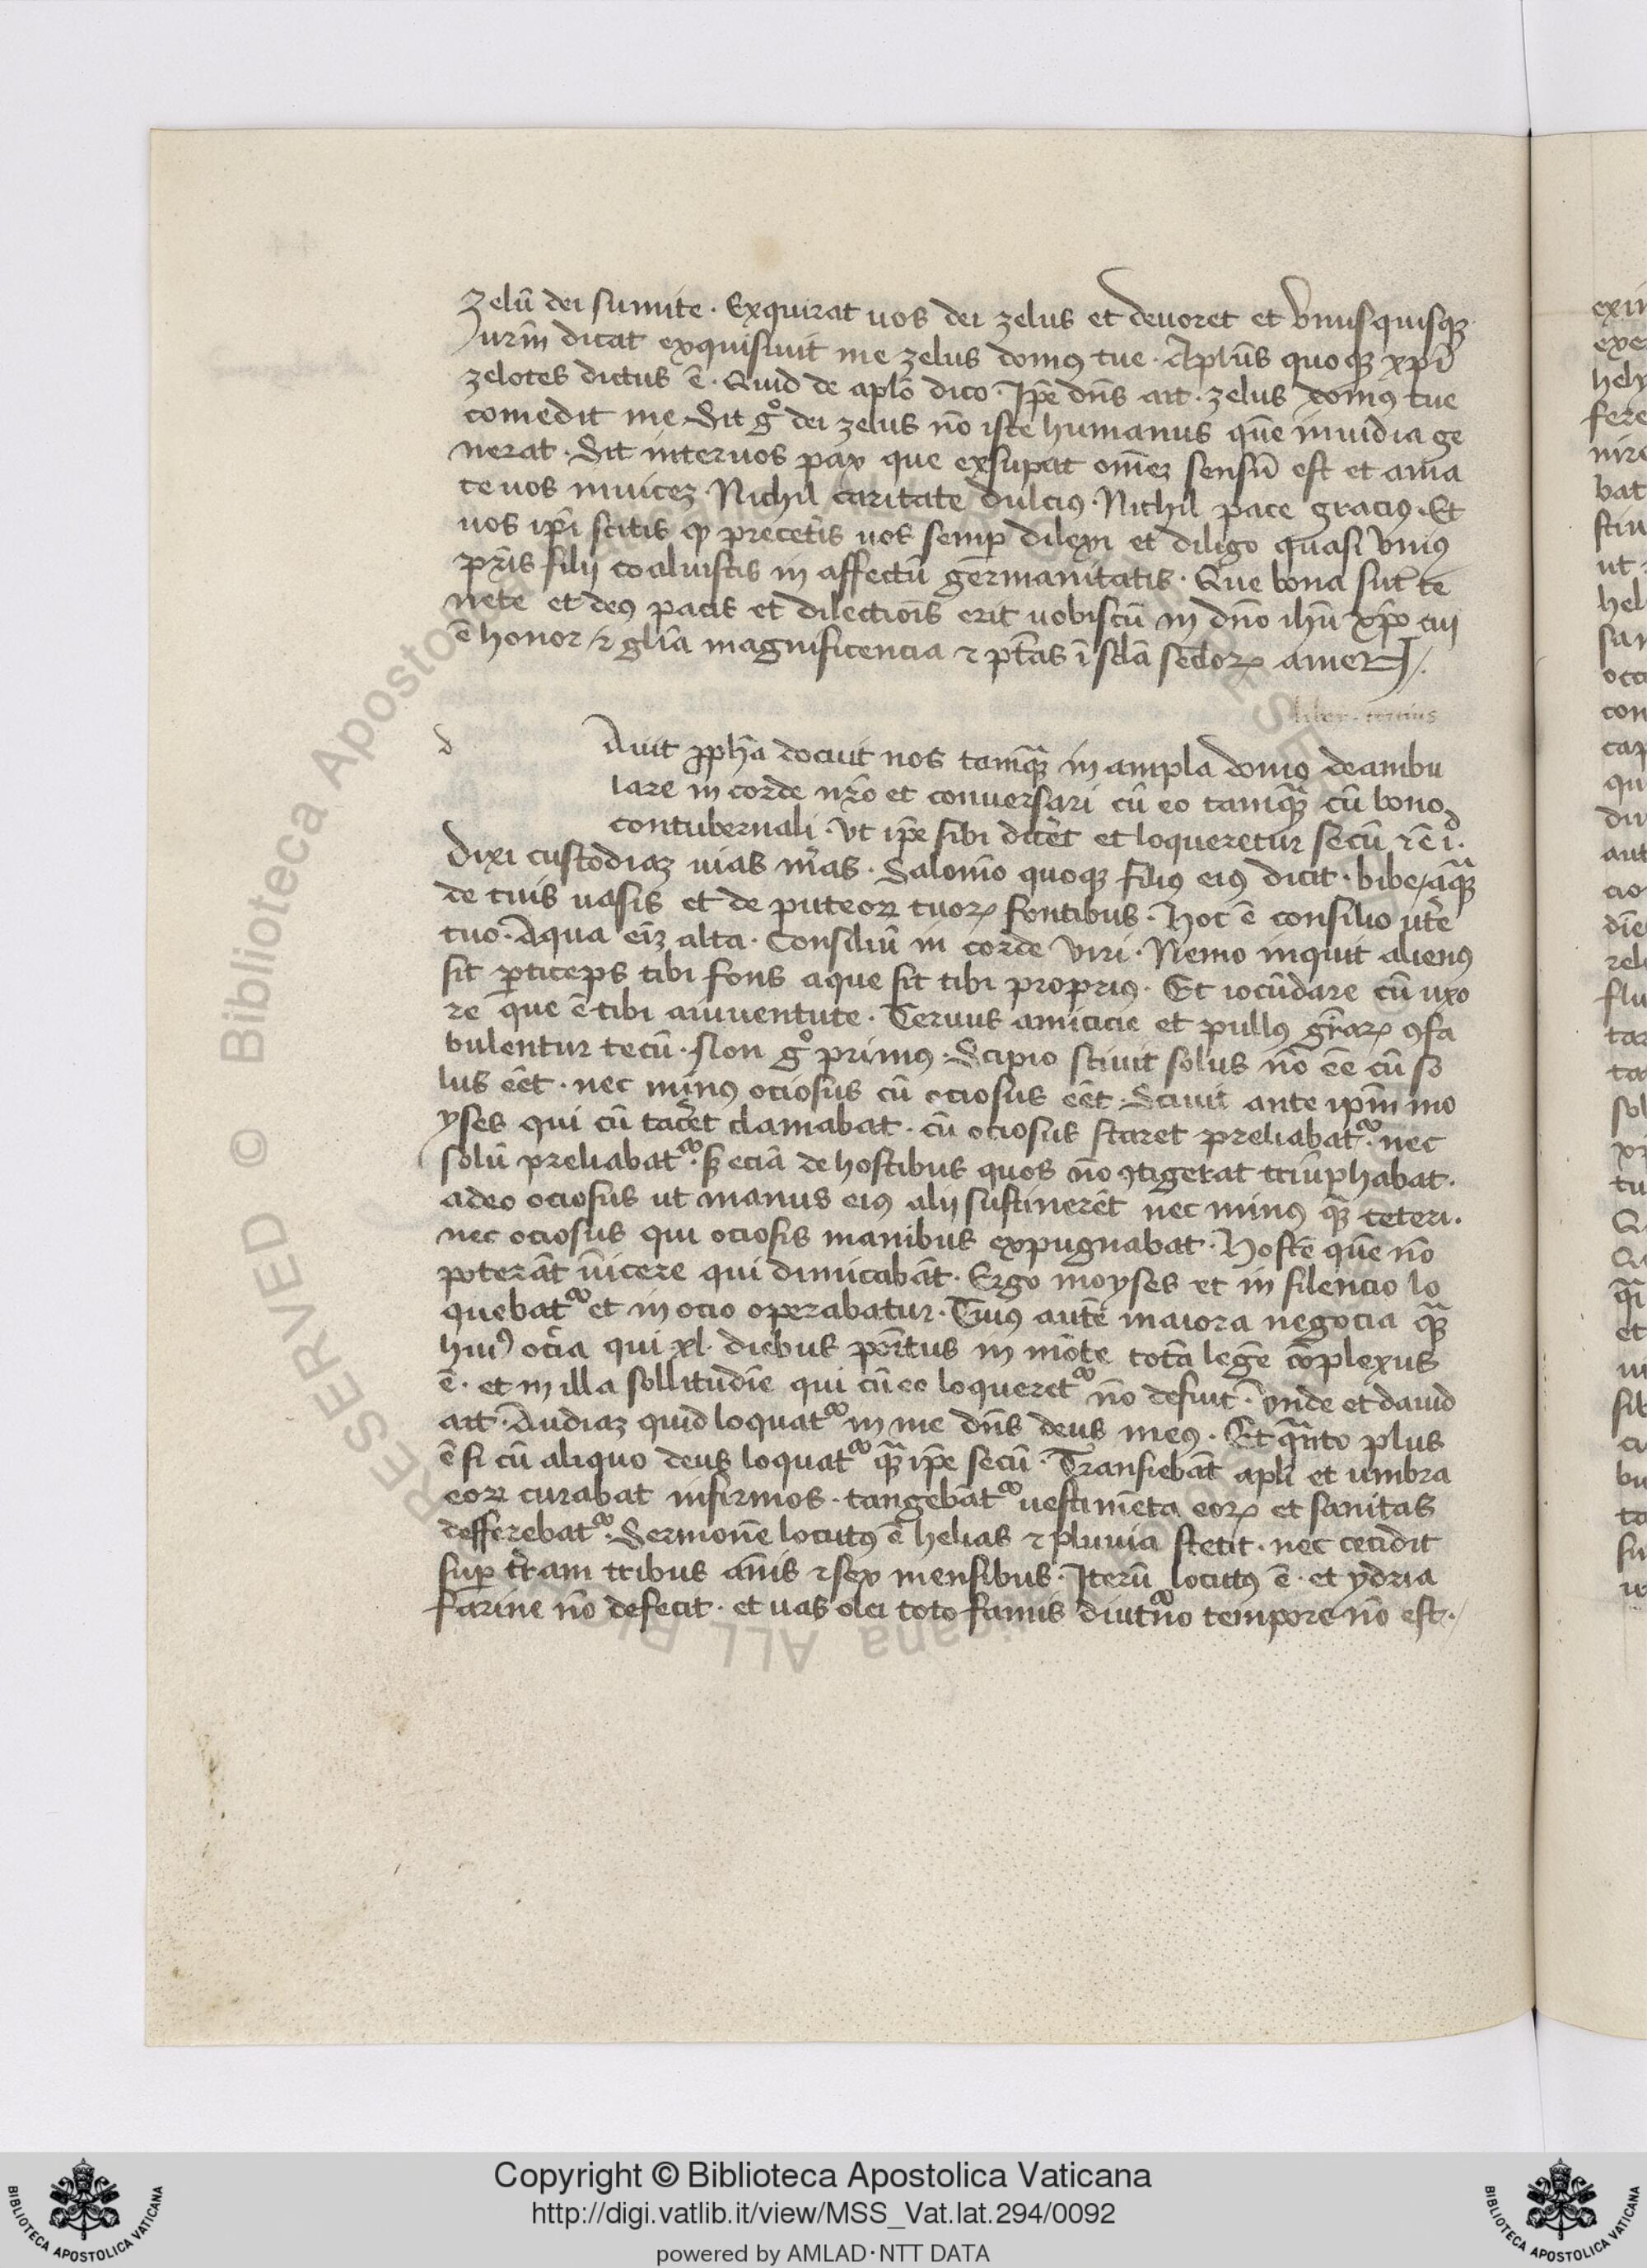 zelū dei sumite · Exquirat uos dei zelus et deuoret et vnusquisqꝫ
urm̄ dicat exquisiuit me zelus domꝰ tue · Apl̄us quoqꝫ xpī
zelotes dictus ē · Quid de aplō dico · Ip̄e dn̄s ait · zelus domꝰ tue
comedit me · Sit gͦ dei zelus nō iste humanus quē inuidia ge
nerat · Sit inter uos pax que exsuꝑat om̄eꝫ sensū est et ama
te uos inuiceꝫ · Nichil caritate dulciꝰ · Nichil pace graciꝰ · Et
uos ip̄i scitis ꝙ pre cet̄is uos semꝑ dilexi et diligo quasi vniꝰ
pr̄is filij coaluistis in affectū germanitatis · Que bona sūt te
nete et deꝰ pacis et dilectiōis erit uobiscū in dn̄o ih̄u xp̄o cui
ē honor ⁊ gl̄ia magnificencia ⁊ pt̄as ī sc̄l̄a sc̄l̄oꝝ amen
liber · tercius
d
Auit ꝓph̄a docuit nos tamqᷓꝫ in ampla domo deambu
lare in corde nr̄o et conuersari cū eo tamqᷓꝫ cū bono
contubernali · vt ip̄e sibi dic̄et et loqueretur secū ⁊ ē i ·
Dixi custodiaꝫ uias m̄as · Salomō quoqꝫ filiꝰ eiꝰ dicit · bibe aqᷓꝫ
de tuis uasis et de puteoꝝ tuoꝝ fontibus · hoc ē consilio ut̄e
tuo · Aqua eīꝫ alta · Consiliū in corde viri · Nemo inquit alienꝰ
sit ꝑticeps tibi fons aque sit tibi propriꝰ · Et iocūdare cū uxo
re que ē tibi a iuuentute · Ceruus amicicie et pullꝰ gr̄aꝝ ꝯfa
bulentur tecū · Non gͦ primꝰ · Scipio sciuit solus nō eē cū so
lus eēt · nec minꝰ ociosus cū ociosus eēt · Sciuit ante ip̄m mo
yses qui cū tac̄et clamabat · cū ociosus staret preliabatᷣ · nec
solū preliabatᷣ · sꝫ eciā de hostibus quos nō ꝯtigerat triūphabat ·
adeo ociosus ut manus eiꝰ alij sustinerēt nec minꝰ qᷓꝫ ceteri ·
nec ociosus qui ociosis manibus expugnabat · hostē quē nō
poterāt uīcere qui dimicabāt · Ergo moyses et in silencio lo
quebatᷣ et in ocio operabatur · Cuiꝰ autē maiora negocia qᷓꝫ
huiꝰ ocia qui xl · diebus poītus in mōte totā legē cōplexus
ē · et in illa sollitudīe qui cū eo loqueretᷣ nō defuit · vnde et dauid
ait · Audiaꝫ quid loquatᷣ in me dn̄s deus meꝰ · Et qᷓnto plus
ē si cū aliquo deus loquatᷣ qᷓꝫ ip̄e secū · Transiebāt apl̄i et umbra
eoꝝ curabat infirmos · tangebātᷣ uestimēta eoꝝ et sanitas
defferebatᷣ · Sermonē locutꝰ ē helias ⁊ pluuia stetit · nec cecidit
suꝑ t̄ram tribus an̄is ⁊ sex mensibus · Iterū locutꝰ ē · et ydria
farine nō defecit · et uas olei toto famis diutᷣno tempore nō est ·
Copyright © Biblioteca Apostolica Vaticana
http://digi.vatlib.it/view/MSS_Vat.lat.294/0092
powered by AMLAD·NTT DATA